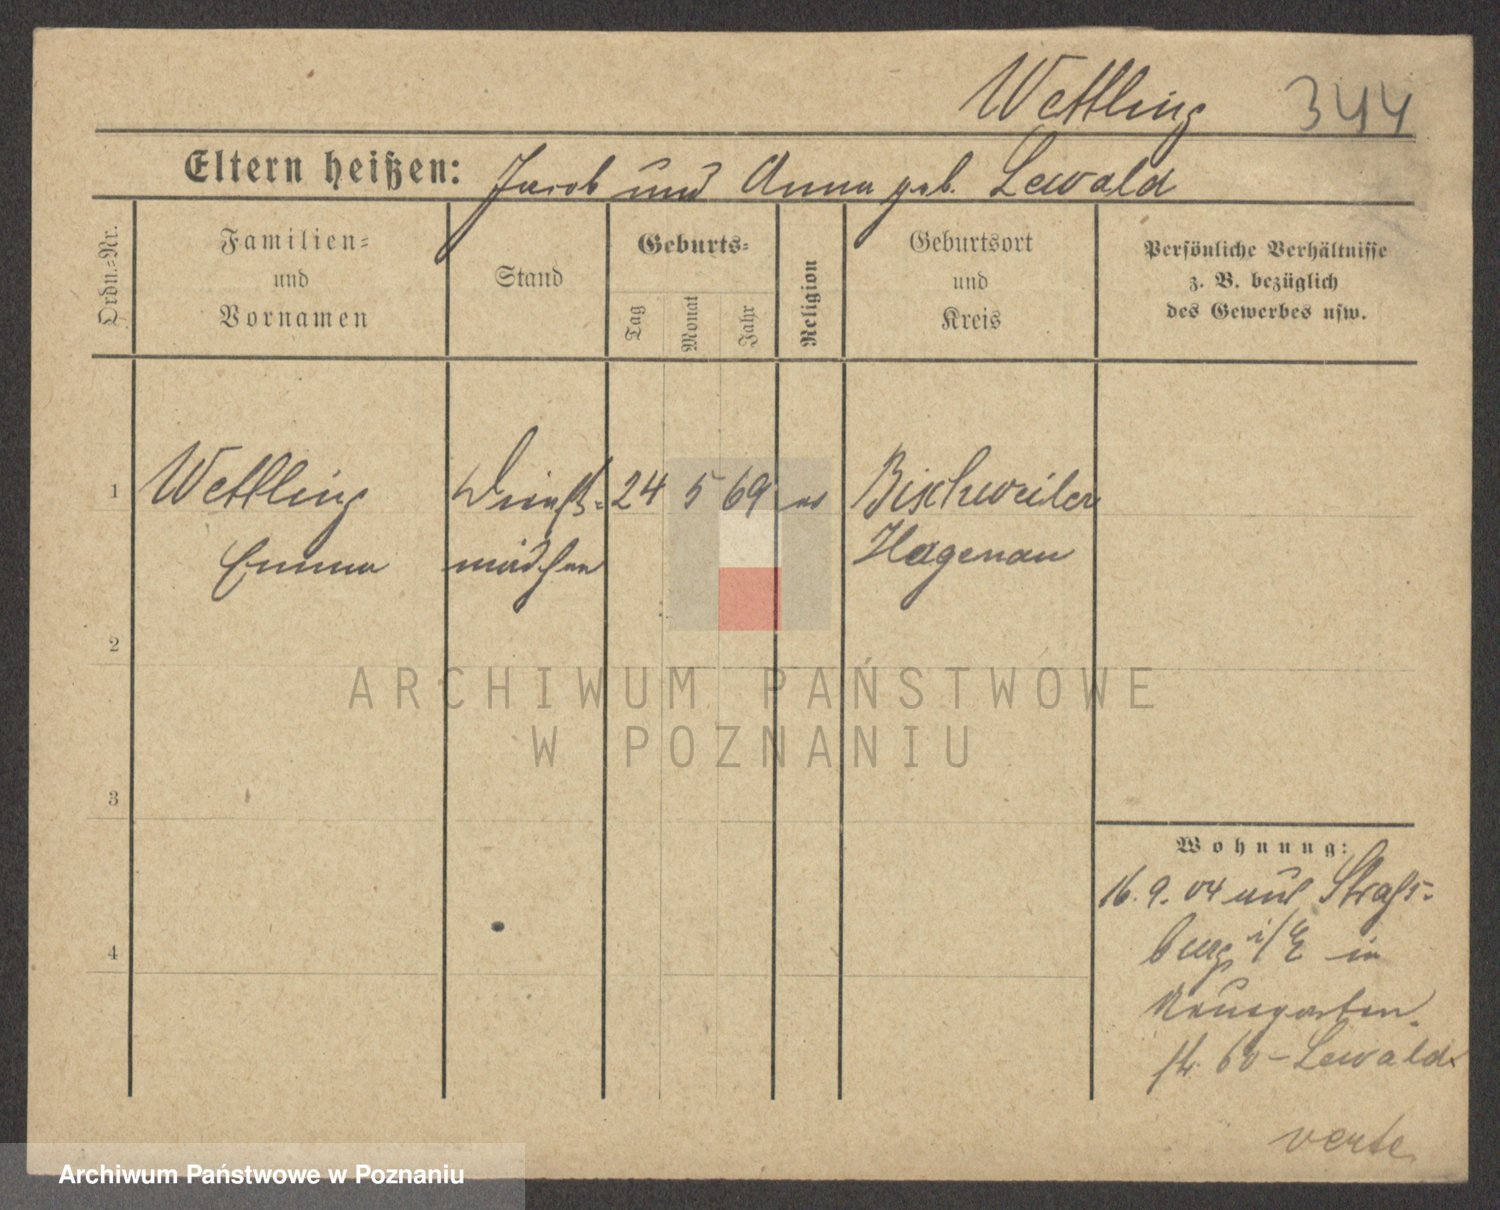 Wettling 344
Eltern heißen: Jacob und Anna geb. Lewald
Ordn.-Nr.
Familien-
und
Vornamen
Stand
Geburts-
Tag
Monat
Jahr
Religion
Geburtsort
und
Kreis
Persönliche Verhältnisse
z. B. bezüglich
des Gewerbes usw.
1 Wettling Dienst- 24 5 69 Bischweiler
Emma mädchen Hagenau
2
3
4
Wohnung:
16. 9. 04 aus Straß-
burg i/E in
str. 60 - Lewald
verte
ARCHIWUM PAŃSTWOWE
W POZNANIU
Archiwum Państwowe w Poznaniu